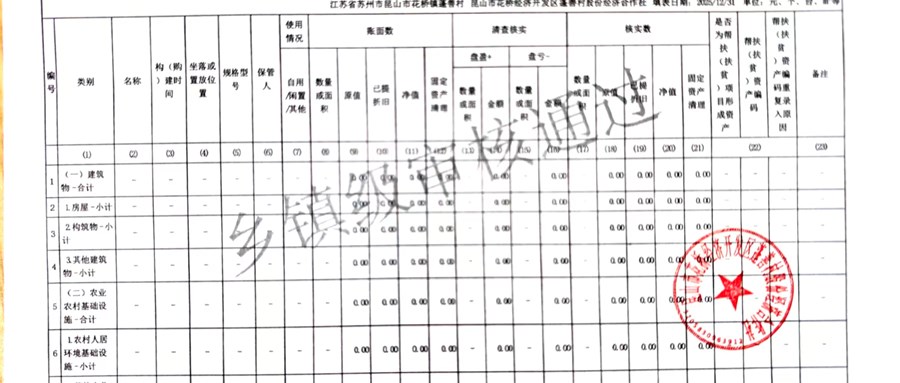 江苏省苏州市昆山市花桥镇蓬善村 昆山市花桥经济开发区蓬善村股份经济合作社 填表日期: 2025/12/31 单位: 元、个、台、亩等
编号 类别 名称 构(购)建时间 坐落或置放位置 规格型号 保管人 使用情况 账面数 清查核实 核实数 是否为帮扶(扶贫)项目形成资产 帮扶(扶贫)资产编码 帮扶(扶贫)资产编码重复录入原因 备注
盘盈+ 盘亏-
自用/闲置/其他 数量或面积 原值 已提折旧 净值 固定资产清理 数量或面积 金额 数量或面积 金额 数量或面积 原值 已提折旧 净值 固定资产清理
(1) (2) (3) (4) (5) (6) (7) (8) (9) (10) (11) (12) (13) (14) (15) (16) (17) (18) (19) (20) (21) (22) (23)
1 (一)建筑物-合计 - - - - - - - 0.00 0.00 0.00 0.00 - 0.00 - 0.00 - 0.00 0.00 0.00 0.00 - - - -
2 1.房屋-小计 - - - - - - - 0.00 0.00 0.00 0.00 - 0.00 - 0.00 - 0.00 0.00 0.00 0.00 - - - -
3 2.构筑物-小计 - - - - - - - 0.00 0.00 0.00 0.00 - 0.00 - 0.00 - 0.00 0.00 0.00 0.00 - -
4 3.其他建筑物-小计 - - - - - - - 0.00 0.00 0.00 0.00 - 0.00 - 0.00 - 0.00 0.00 0.00 0.00 -
5 (二)农业农村基础设施-合计 - - - - - - - 0.00 0.00 0.00 0.00 - 0.00 - 0.00 - 0.00 0.00 0.00 0.00 -
6 1.农村人居环境基础设施-小计 - - - - - - - 0.00 0.00 0.00 0.00 - 0.00 - 0.00 - 0.00 0.00 0.00 0.00 -
乡镇级审核通过